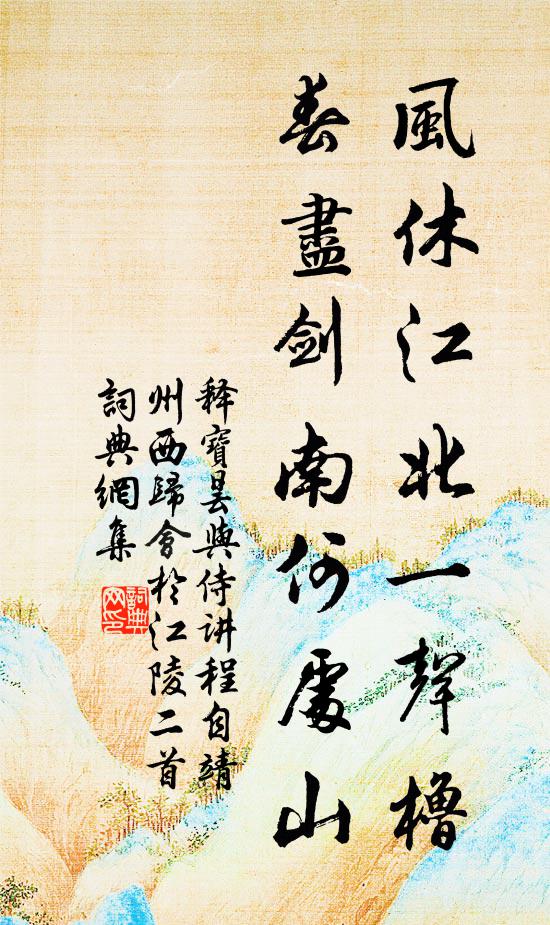 風休江北一聲櫓
春盡劍南何處山
释寶曇與侍讲程自靖
州西歸會於江陵二首
詞典網集
詞典
网印